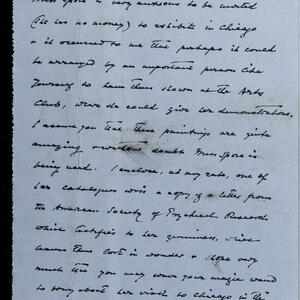 Miss Spore is very anxious to be invited
(she has no money) to exhibit in Chicago
& it occurred to me that perhaps it could
be arranged by an important person like
yourself to have them shown at the Arts
Club, where she could give her demonstrations.
I assure you that these paintings are quite
amazing & without doubt Miss Spore is
being used. I enclose, at any rate, one of
her catalogues with a copy of a letter from
the American Society of Psychical Research
which certifies to her genuineness, which
leaves them lost in wonder & I hope very
much that you may own your magic wand
to bring about her visit to Chicago in the